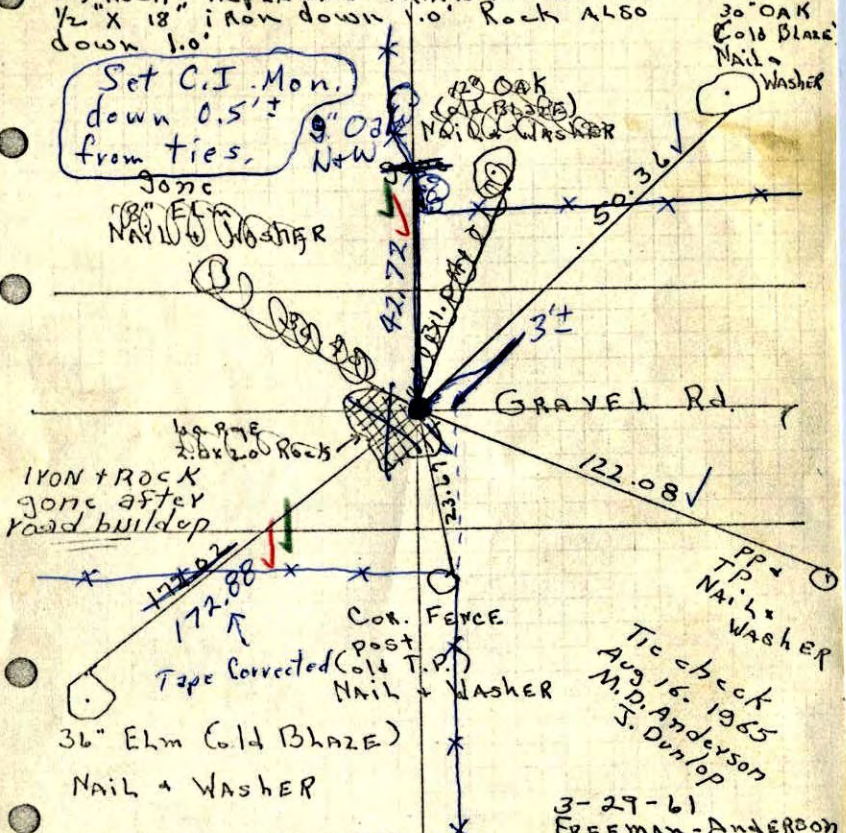 1/2" X 18" iron down 1.0' Rock ALSO
down 1.0'
30" OAK
(old BLAZE)
NAIL &
WASHER
Set C.I. Mon.
down 0.5'±
from ties.
12" OAK
(old BLAZE)
NAIL & WASHER
9" Oak
N+W
gone
"8" ELM
NAIL & WASHER
50.36
42.72
3'±
GRAVEL Rd.
LARGE
2.0x2.0 Rock
IRON + ROCK
gone after
road buildup
122.08
22.67
PP &
TP
NAIL &
WASHER
172.88
Tape Corrected
COR. FENCE
post
(old T.P.)
NAIL & WASHER
Tie check
Aug 16. 1965
M.D. Anderson
J. Dunlop
36" ELM (old BLAZE)
NAIL & WASHER
3-29-61
FREEMAN-ANDERSON